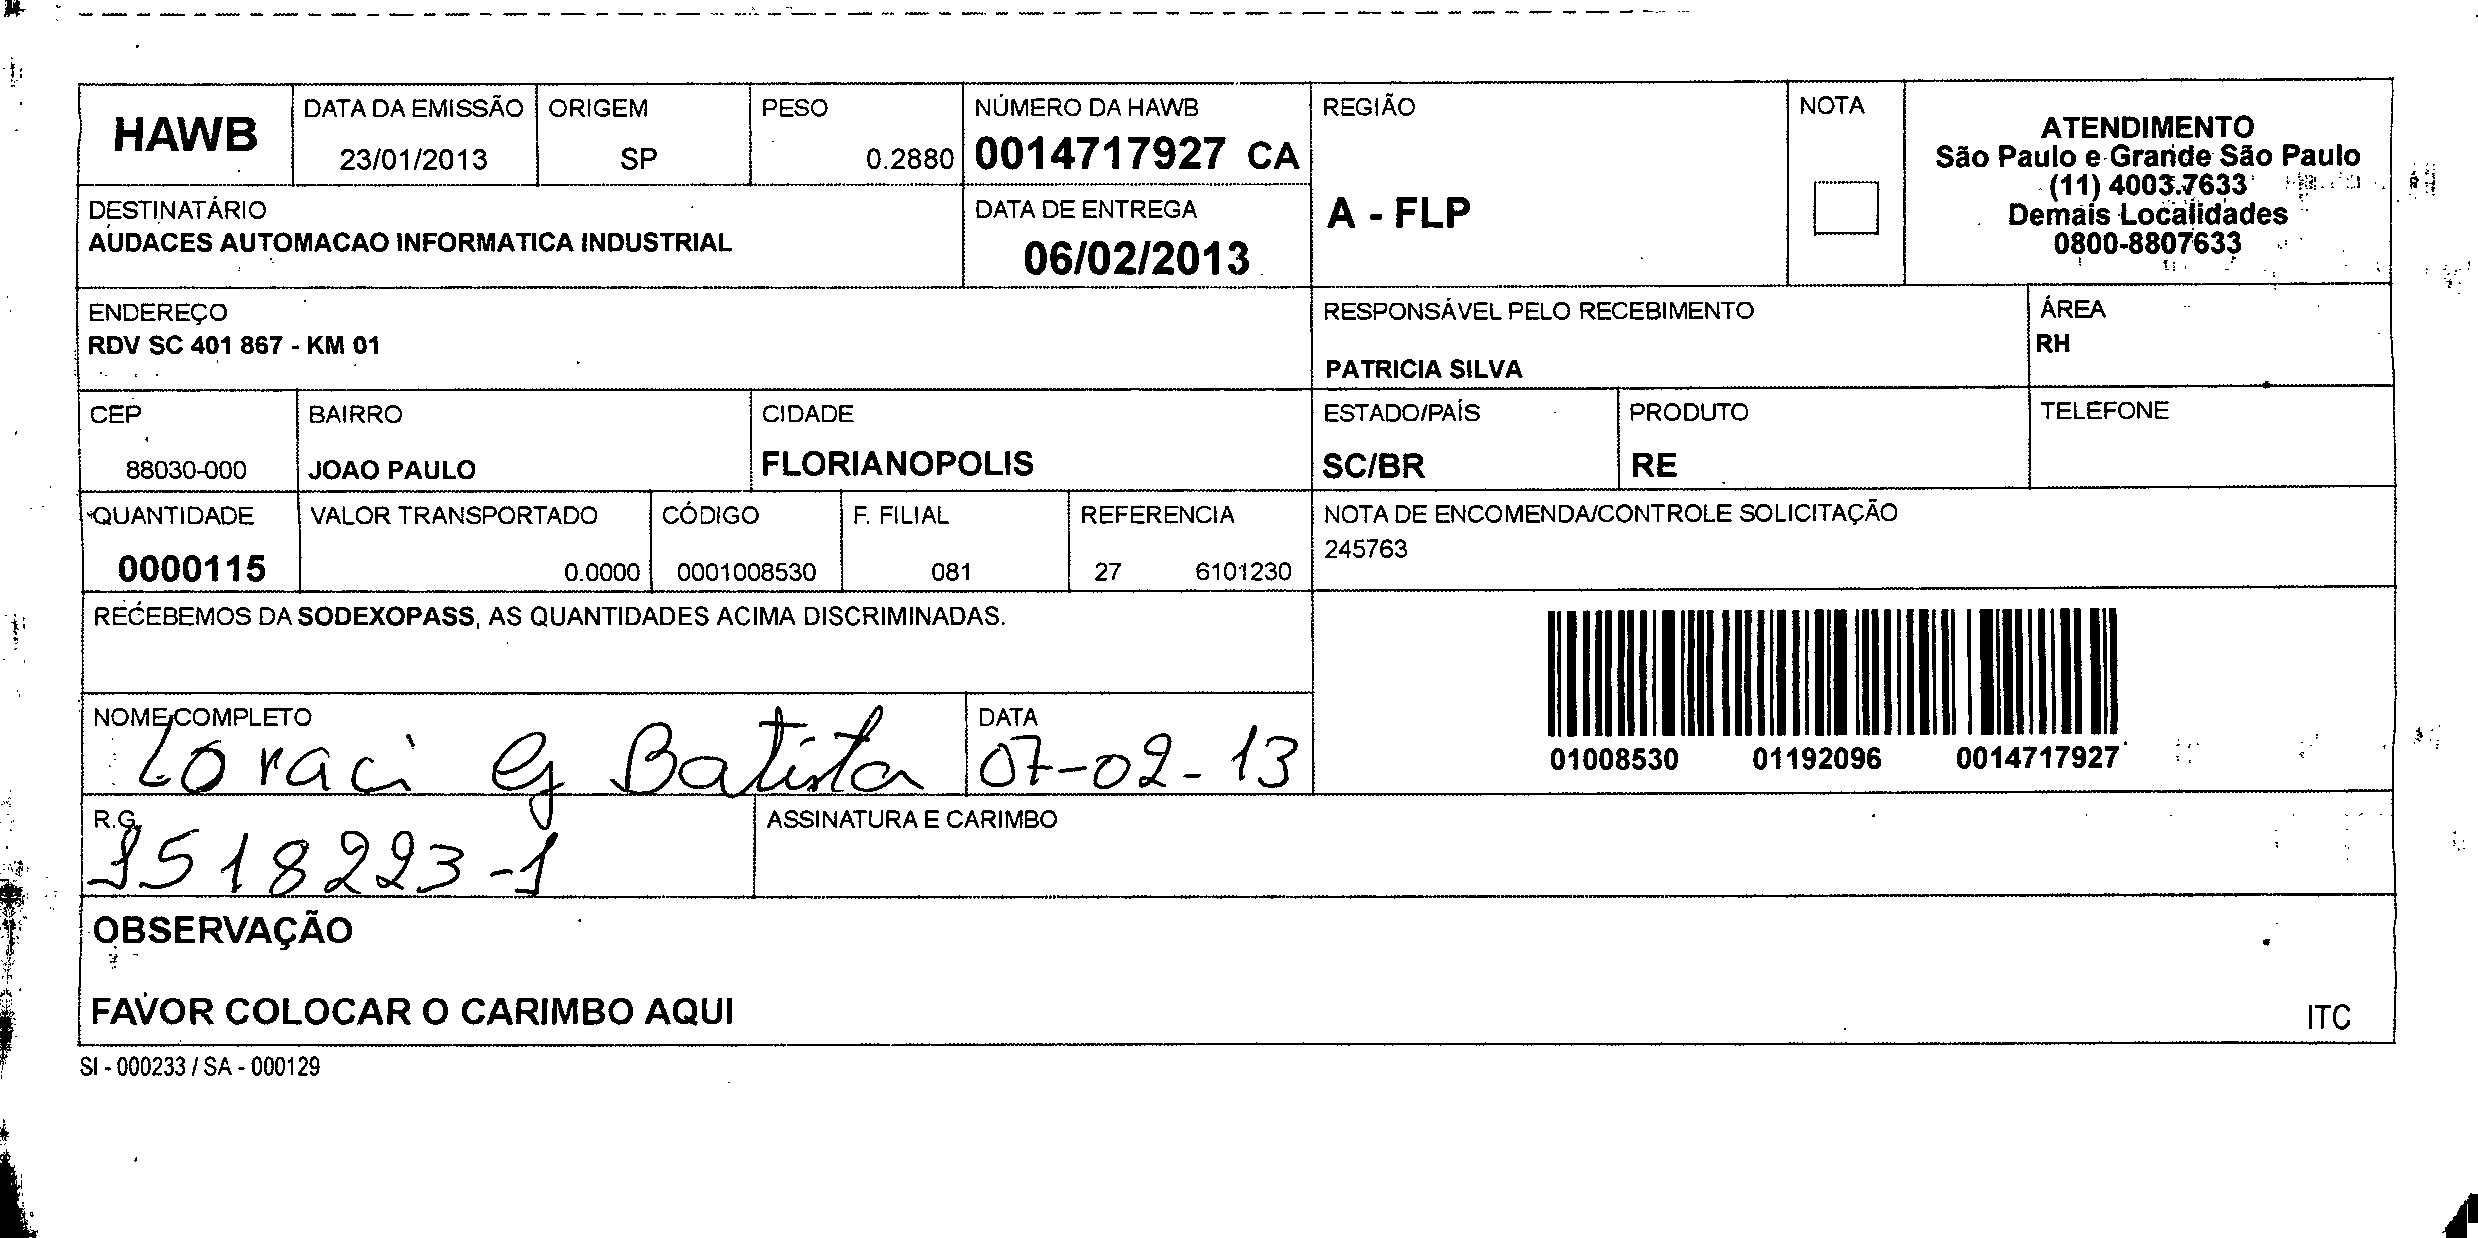 HAWB
DATA DA EMISSÃO
23/01/2013
ORIGEM
SP
PESO
0.2880
NÚMERO DA HAWB
0014717927 CA
REGIÃO
A - FLP
NOTA
ATENDIMENTO
São Paulo e Grande São Paulo
(11) 4003.7633
Demais Localidades
0800-8807633
DESTINATÁRIO
AUDACES AUTOMACAO INFORMATICA INDUSTRIAL
DATA DE ENTREGA
06/02/2013
ENDEREÇO
RDV SC 401 867 - KM 01
RESPONSÁVEL PELO RECEBIMENTO
PATRICIA SILVA
ÁREA
RH
CEP
88030-000
BAIRRO
JOAO PAULO
CIDADE
FLORIANOPOLIS
ESTADO/PAÍS
SC/BR
PRODUTO
RE
TELEFONE
QUANTIDADE
0000115
VALOR TRANSPORTADO
0.0000
CÓDIGO
0001008530
F. FILIAL
081
REFERENCIA
27 6101230
NOTA DE ENCOMENDA/CONTROLE SOLICITAÇÃO
245763
RECEBEMOS DA SODEXOPASS, AS QUANTIDADES ACIMA DISCRIMINADAS.
01008530 01192096 0014717927
NOME COMPLETO
Loraci G Batista
DATA
07-02-13
R.G.
3518223-1
ASSINATURA E CARIMBO
OBSERVAÇÃO
FAVOR COLOCAR O CARIMBO AQUI
ITC
SI - 000233 / SA - 000129